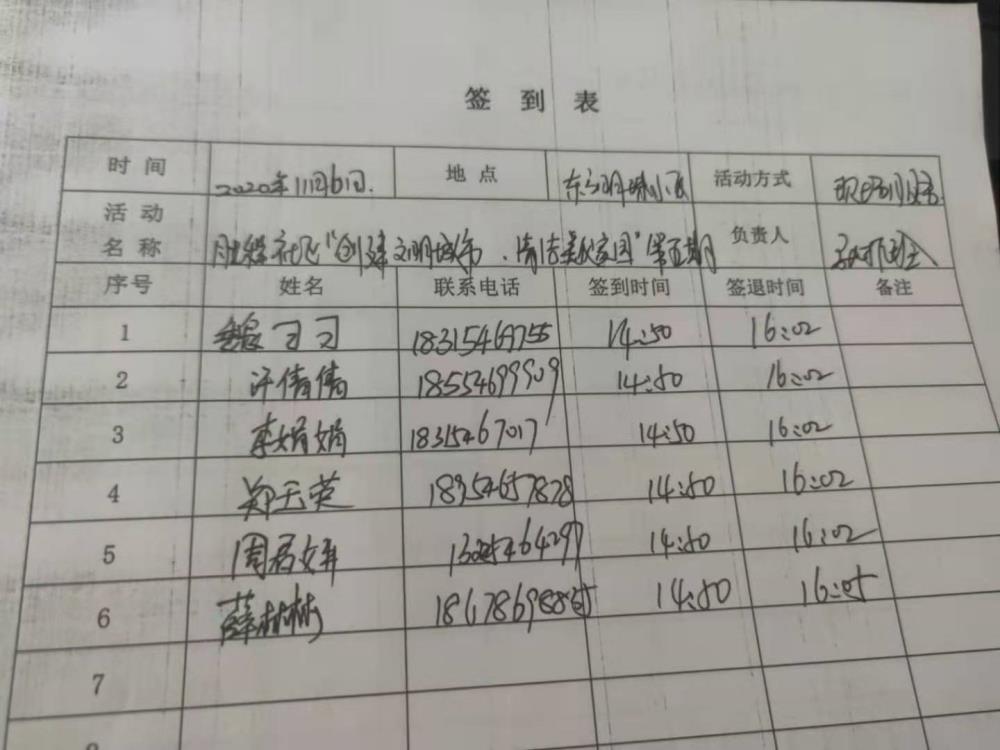 签到表
时间 2020年11月6日. 地点 东方明珠小区 活动方式
活动名称 社区“创建文明城市、清洁美化家园”第五期 负责人
序号 姓名 联系电话 签到时间 签退时间 备注
1 魏习习 18315469755 14:50 16:02
2 许倩倩 18554699909 14:50 16:02
3 李娟娟 18315467017 14:50 16:02
4 郑玉英 18954657828 14:50 16:02
5 14:50 16:02
6 薛林林 14:50 16:05
7